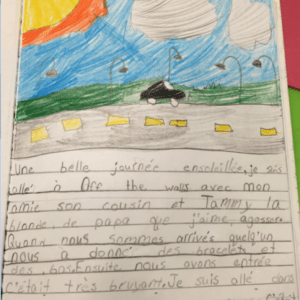 Une belle journée ensoleillée, je suis
allé à Off the walls avec mon
amie son cousin et Tammy la
blonde de papa que j'aime agasser.
Quand nous sommes arrivés quelq'un
nous a donné des bracelets et
des bas. Ensuite nous avons entrée
C'était très bruyant. Je suis allé dans